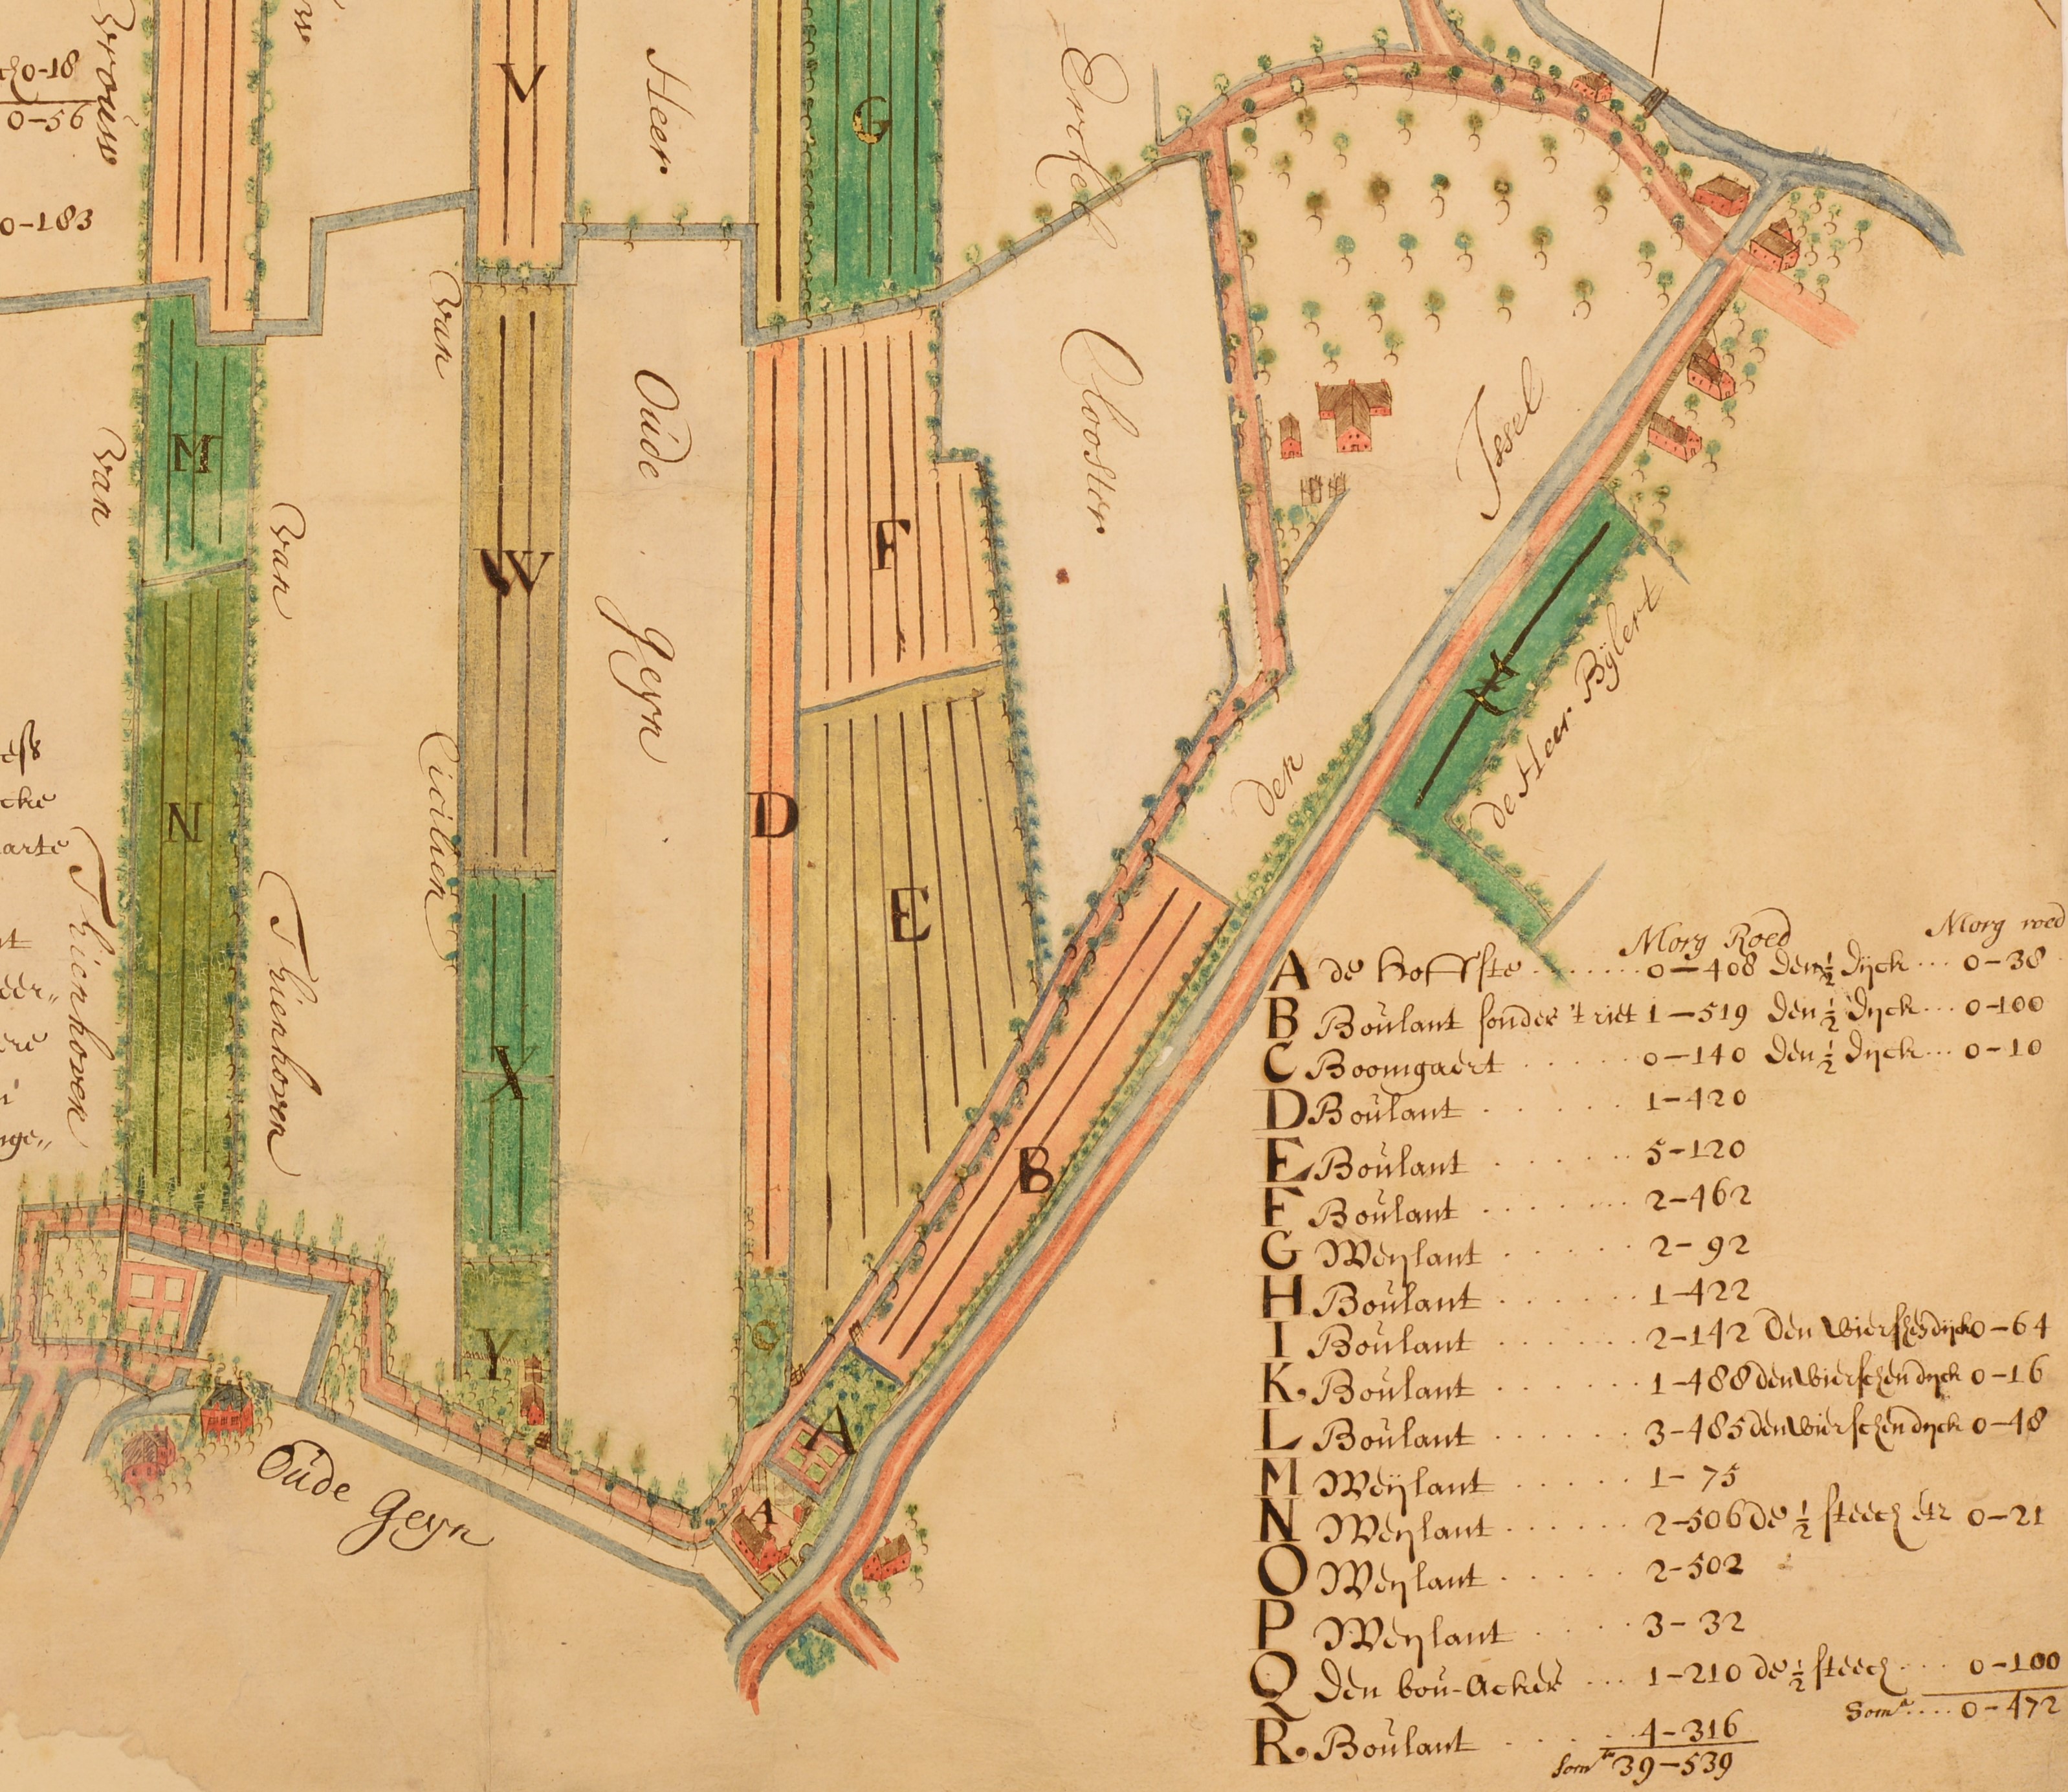 0-18
0-56
0-183
Vrouw
van
Thienhoven
van
Thienhoven
van
Cicilien
Heer
Oude
Geyn
Erckel
Clooster
Issel
den
de Heer Bÿlert
V
G
M
W
F
N
D
E
H
X
B
Y
C
A
A
Oude Geyn
cke
arte
nt
eer„
ere
nge„
Morg Roed Morg roed
A de hoffste 0-408 den ½ dyck 0-38
B Boulant sonder 't riet 1-519 den ½ dyck 0-100
C Boomgaert 0-140 den ½ dyck 0-10
D Boulant 1-420
E Boulant 5-120
F Boulant 2-462
G Weylant 2-92
H Boulant 1-422
I Boulant 2-142 den wierschendyck 0-64
K. Boulant 1-488 den wierschen dyck 0-16
L Boulant 3-485 den wierschen dyck 0-48
M Weÿlant 1-75
N Weÿlant 2-506 de ½ steech etz 0-21
O Weÿlant 2-502
P Weÿlant 3-32
Q Den bou-Acker 1-210 de ½ steech 0-100
Somᵃ 0-472
R. Boulant 4-316
Somᵃ 39-539